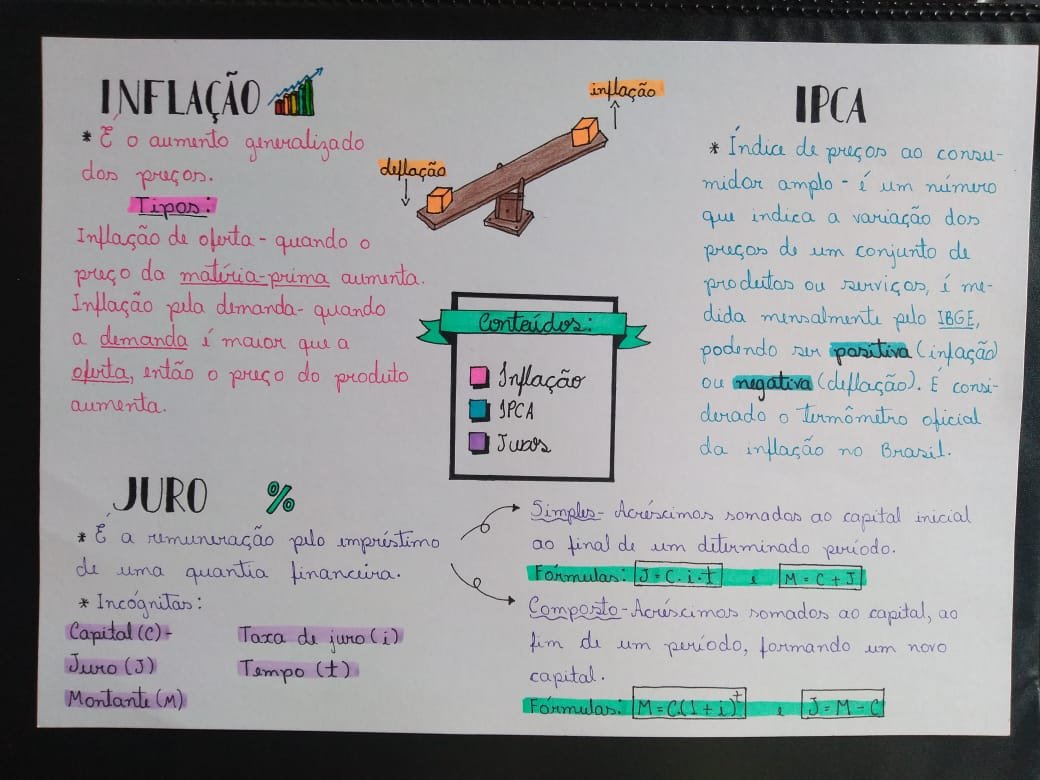 INFLAÇÃO
* É o aumento generalizado
dos preços.
Tipos:
Inflação de oferta - quando o
preço da matéria-prima aumenta.
Inflação pela demanda - quando
a demanda é maior que a
oferta, então o preço do produto
aumenta.
deflação
inflação
Conteúdos:
Inflação
IPCA
Juros
IPCA
* Índice de preços ao consu-
midor amplo - é um número
que indica a variação dos
preços de um conjunto de
produtos ou serviços, é me-
dida mensalmente pelo IBGE,
podendo ser positiva (inflação)
ou negativa (deflação). É consi-
derado o termômetro oficial
da inflação no Brasil.
JURO %
* É a remuneração pelo empréstimo
de uma quantia financeira.
* Incógnitas:
Capital (C) -
Taxa de juro (i)
Juro (J)
Tempo (t)
Montante (M)
Simples - Acréscimos somados ao capital inicial
ao final de um determinado período.
Fórmulas: J = C . i . t e M = C + J
Composto - Acréscimos somados ao capital, ao
fim de um período, formando um novo
capital.
Fórmulas: M = C.(1+i)^t e J = M - C